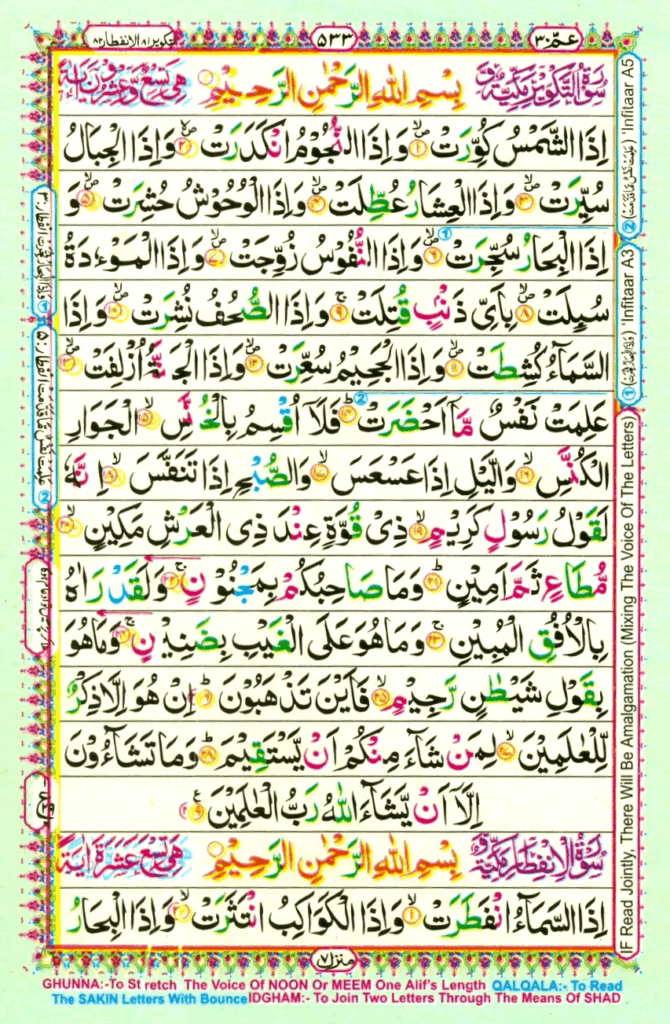 عمّ ٣٠
٥٣٣
التكوير ٨١ الانفطار ٨٢
سُوْرَةُ التَّكْوِيْرِ مَكِّيَّةٌ بِسْمِ اللهِ الرَّحْمٰنِ الرَّحِيْمِ هِيَ تِسْعٌ وَّعِشْرُوْنَ اٰيَةً
اِذَا الشَّمْسُ كُوِّرَتْ ۙ‏﴿۱﴾ وَاِذَا النُّجُوْمُ انْكَدَرَتْ ۙ‏﴿۲﴾ وَاِذَا الْجِبَالُ
سُيِّرَتْ ۙ‏﴿۳﴾ وَاِذَا الْعِشَارُ عُطِّلَتْ ۙ‏﴿۴﴾ وَاِذَا الْوُحُوْشُ حُشِرَتْ ۙ‏﴿۵﴾ وَ
اِذَا الْبِحَارُ سُجِّرَتْ ۙ‏﴿۶﴾ وَاِذَا النُّفُوْسُ زُوِّجَتْ ۙ‏﴿۷﴾ وَاِذَا الْمَوْءٗدَةُ
سُىِٕلَتْ ۙ‏﴿۸﴾ بِاَىِّ ذَنْۢبٍ قُتِلَتْ ۚ‏﴿۹﴾ وَاِذَا الصُّحُفُ نُشِرَتْ ۙ‏﴿۱۰﴾ وَاِذَا
السَّمَآءُ كُشِطَتْ ۙ‏﴿۱۱﴾ وَاِذَا الْجَحِيْمُ سُعِّرَتْ ۙ‏﴿۱۲﴾ وَاِذَا الْجَنَّةُ اُزْلِفَتْ ۙ‏﴿۱۳﴾
عَلِمَتْ نَفْسٌ مَّاۤ اَحْضَرَتْ ؕ‏﴿۱۴﴾ فَلَاۤ اُقْسِمُ بِالْخُنَّسِ ۙ‏﴿۱۵﴾ الْجَوَارِ
الْكُنَّسِ ۙ‏﴿۱۶﴾ وَالَّيْلِ اِذَا عَسْعَسَ ۙ‏﴿۱۷﴾ وَالصُّبْحِ اِذَا تَنَفَّسَ ۙ‏﴿۱۸﴾ اِنَّهٗ
لَقَوْلُ رَسُوْلٍ كَرِيْمٍ ۙ‏﴿۱۹﴾ ذِىْ قُوَّةٍ عِنْدَ ذِى الْعَرْشِ مَكِيْنٍ ۙ‏﴿۲۰﴾
مُّطَاعٍ ثَمَّ اَمِيْنٍ ؕ‏﴿۲۱﴾ وَمَا صَاحِبُكُمْ بِمَجْنُوْنٍ ۚ‏﴿۲۲﴾ وَلَقَدْ رَاٰهُ
بِالْاُفُقِ الْمُبِيْنِ ۚ‏﴿۲۳﴾ وَمَا هُوَ عَلَى الْغَيْبِ بِضَنِيْنٍ ۚ‏﴿۲۴﴾ وَمَا هُوَ
بِقَوْلِ شَيْطٰنٍ رَّجِيْمٍ ۙ‏﴿۲۵﴾ فَاَيْنَ تَذْهَبُوْنَ ؕ‏﴿۲۶﴾ اِنْ هُوَ اِلَّا ذِكْرٌ
لِّلْعٰلَمِيْنَ ۙ‏﴿۲۷﴾ لِمَنْ شَآءَ مِنْكُمْ اَنْ يَّسْتَقِيْمَ ؕ‏﴿۲۸﴾ وَمَا تَشَآءُوْنَ
اِلَّاۤ اَنْ يَّشَآءَ اللهُ رَبُّ الْعٰلَمِيْنَ ‏﴿۲۹﴾
سُوْرَةُ الْاِنْفِطَارِ مَكِّيَّةٌ بِسْمِ اللهِ الرَّحْمٰنِ الرَّحِيْمِ هِيَ تِسْعَ عَشَرَةَ اٰيَةً
اِذَا السَّمَآءُ انْفَطَرَتْ ۙ‏﴿۱﴾ وَاِذَا الْكَوَاكِبُ انْتَثَرَتْ ۙ‏﴿۲﴾ وَاِذَا الْبِحَارُ
منزل ٧
IF Read Jointly, There Will Be Amalgamation (Mixing The Voice Of The Letters) ① 'Infitaar A3 ② 'Infitaar A5
GHUNNA:-To St retch The Voice Of NOON Or MEEM One Alif's Length QALQALA:- To Read
The SAKIN Letters With Bounce IDGHAM:- To Join Two Letters Through The Means Of SHAD